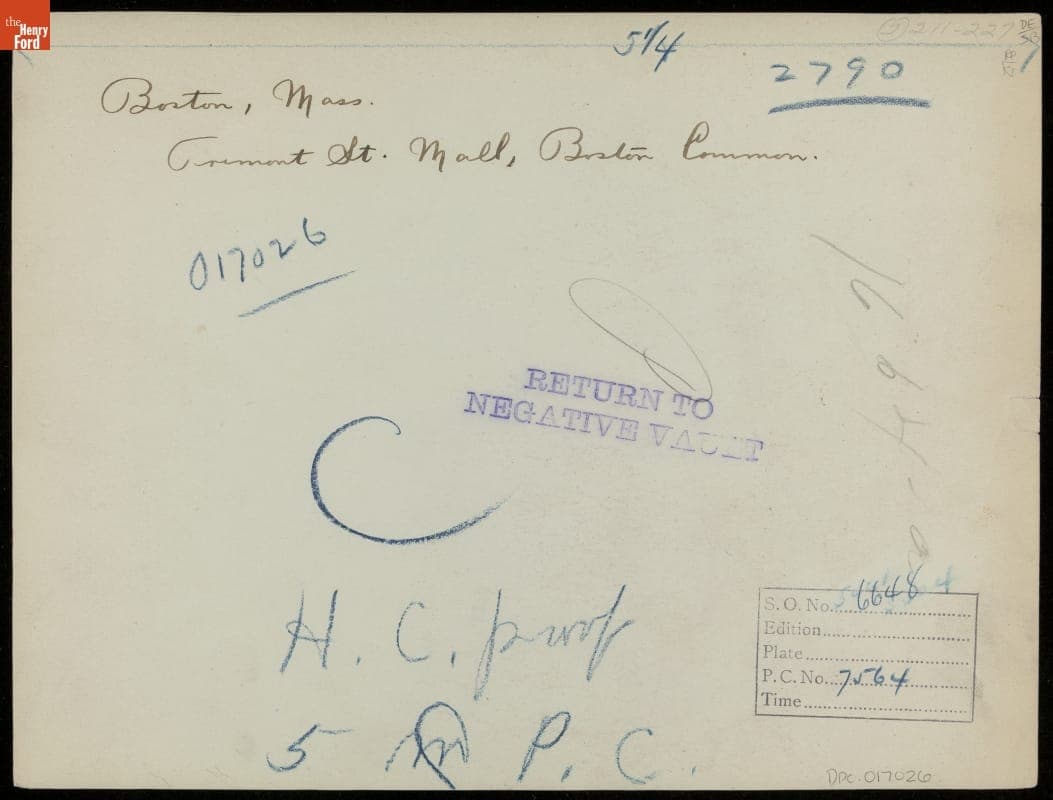 the Henry Ford
51/4
2790
Boston, Mass.
Tremont St. Mall, Boston Common.
017026
RETURN TO
NEGATIVE VAULT
C
H. C. proof
5 m P. C.
S. O. No. 6648
Edition
Plate
P. C. No. 7564
Time
DPC.017026